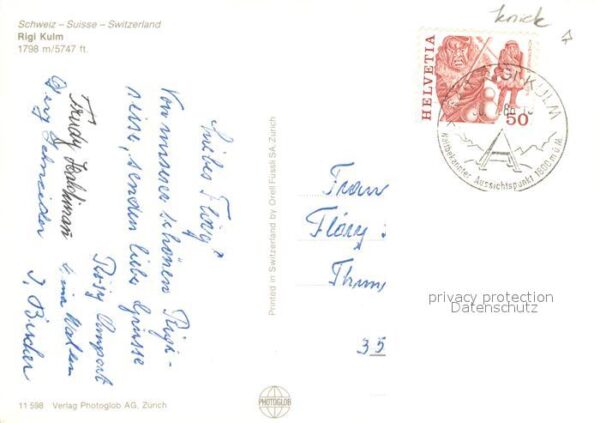 Schweiz – Suisse – Switzerland
Rigi Kulm
1798 m/5747 ft.
knick
HELVETIA
50
RIGI-KULM
Weltbekannter Aussichtspunkt 1800 m ü. M.
Flöry
Von unserer schönen Rigi-
reise, senden liebe Grüsse
Rösy
Trudy
I. Bucher
Printed in Switzerland by Orell Füssli SA, Zürich
Frau
Flöry
Thun
35
privacy protection
Datenschutz
11 598 Verlag Photoglob AG, Zürich
PHOTOGLOB